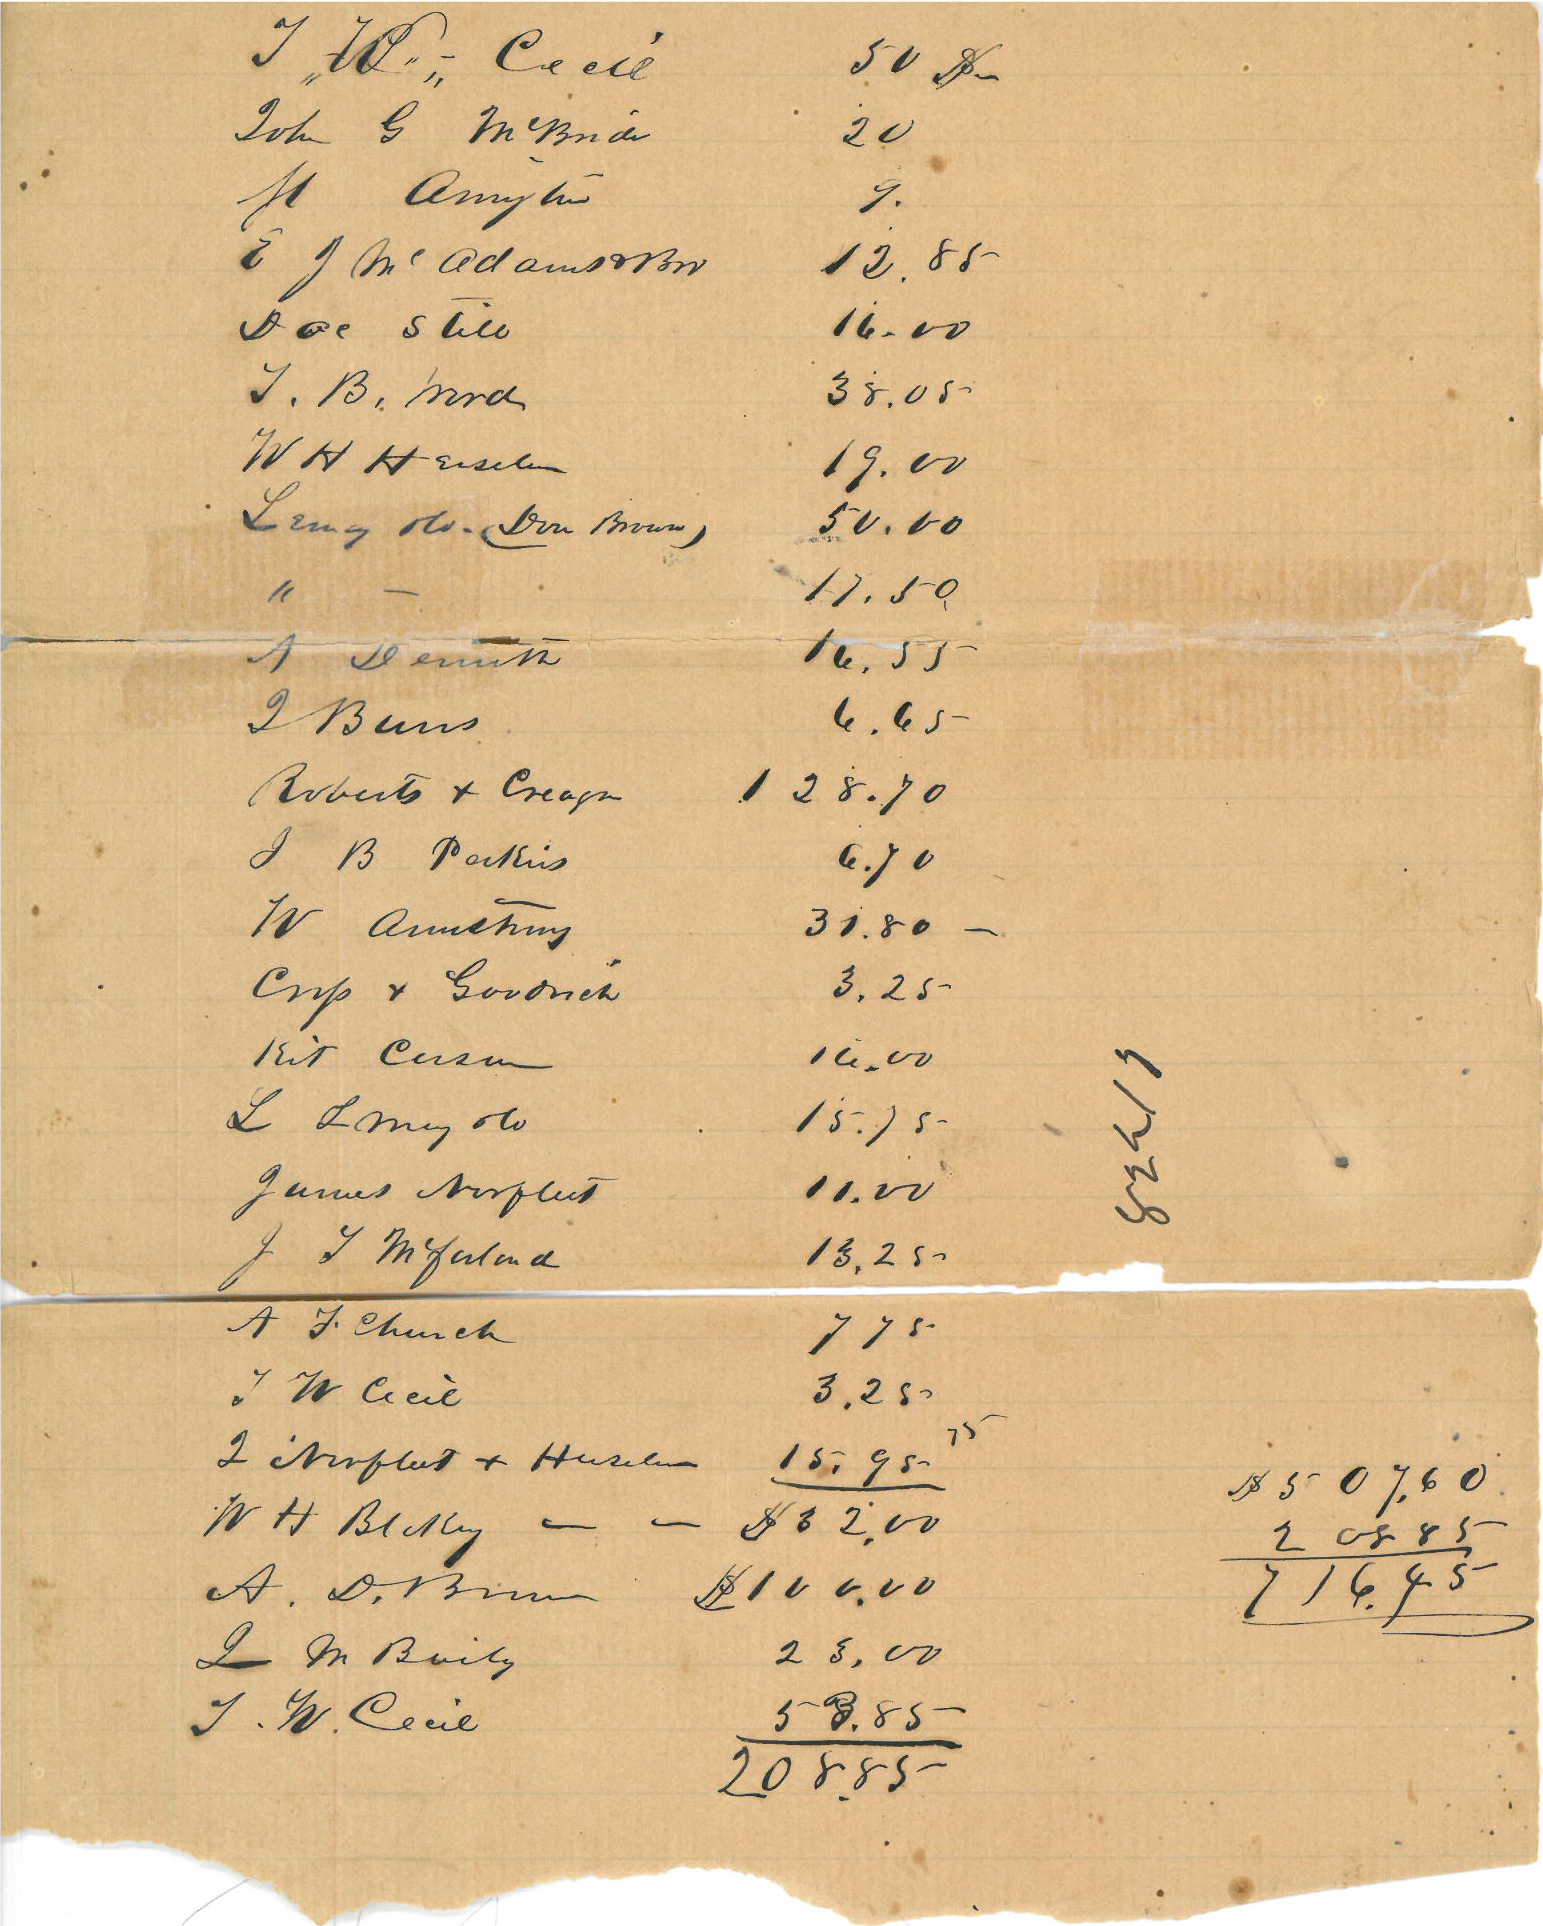 T "W". Cecil 50 $
John G McBride 20
9.
E J Mc Adams & Bro 12.85
Doc Still 16.00
T. B. Word 38.05
W H H 19.00
(Don Brown) 50.00
" — 17.50
A Demuth 16.55
J Burns 6.65
Roberts & Creager 128.70
J B Perkins 6.70
W Armstrong 31.80 —
Crisp & Goodrich 3.25
Kit Carson 16.00
L 15.75
James Norfleet 11.00
J T McFarland 13.25
A F. Church 775
T W Cecil 3.25
J Norfleet & 15.95 75
W H Blakey — — $32.00
A. D. Brown $100.00
J M Baily 23.00
T. W. Cecil 53.85
208.85
$507.60
20885
716.45